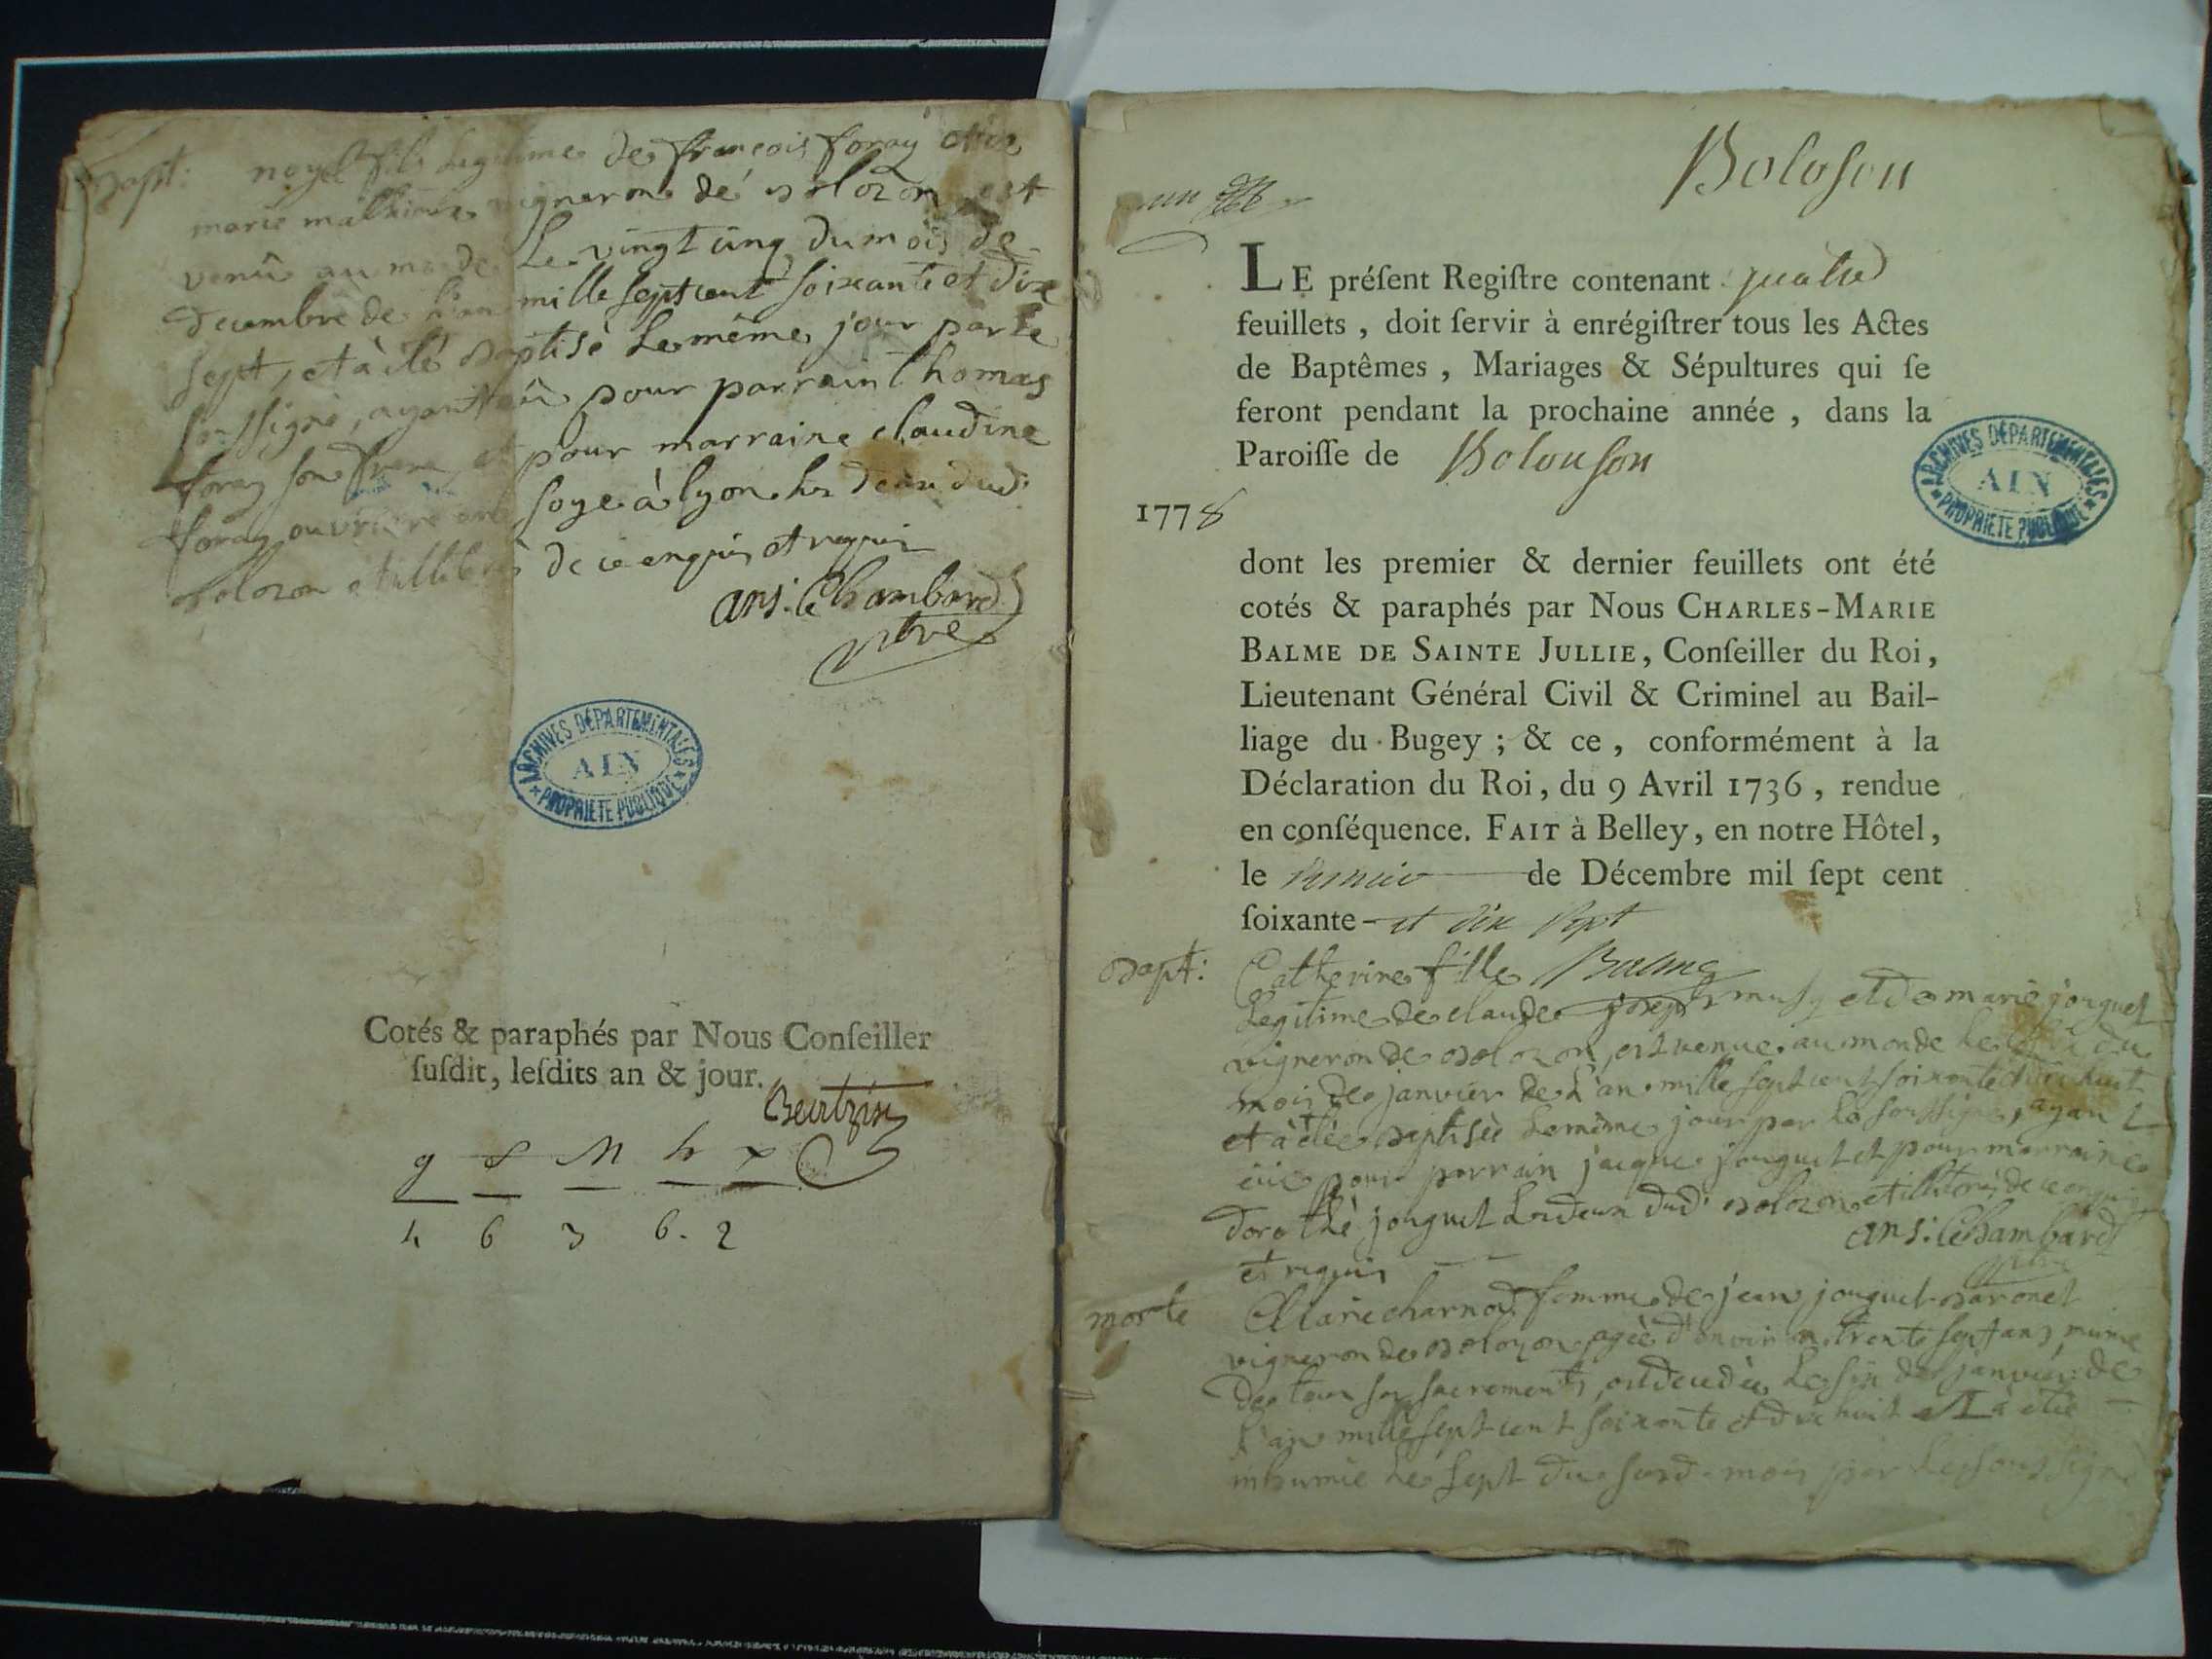 Bapt: noyel fils Legitime de françois foray et de
marie vigneron de bolozon est
venû au monde Le vingt cinq du mois de
decembre de L'an mille sept cent soixante et dix
sept, et à été baptisé Le même jour par Le
soussigné, ayant eû pour parrain thomas
foray son frere, et pour marraine claudine
foray ouvriere en soye à lyon Les deux dud:
bolozon et illiterés de ce enquis et requis
ans: Chambard
ptre
ARCHIVES DÉPARTEMENTALES
AIN
PROPRIÉTÉ PUBLIQUE
Cotés & paraphés par Nous Conſeiller
ſuſdit, leſdits an & jour.
g M h
4 6 3 6. 2
Boloson
un
LE préſent Regiſtre contenant quatre
feuillets, doit ſervir à enrégiſtrer tous les Actes
de Baptêmes, Mariages & Sépultures qui ſe
feront pendant la prochaine année, dans la
Paroiſſe de Bolouson
1778
ARCHIVES DÉPARTEMENTALES
AIN
PROPRIÉTÉ PUBLIQUE
dont les premier & dernier feuillets ont été
cotés & paraphés par Nous CHARLES-MARIE
BALME DE SAINTE JULLIE, Conſeiller du Roi,
Lieutenant Général Civil & Criminel au Bail-
liage du Bugey ; & ce, conformément à la
Déclaration du Roi, du 9 Avril 1736, rendue
en conſéquence. FAIT à Belley, en notre Hôtel,
le premier de Décembre mil ſept cent
ſoixante-et dix sept
Balme
Bapt: Catherine fille
Legitime de claude joseph musy et de marie jouguet
vigneron de bolozon, est venue au monde le du
mois de janvier de L'an mille sept cent soixante et dix huit
et à étée baptisée Le même jour par Le soussigné, ayant
eüe pour parrain jacque jouguet et pour marraine
dorothé jouguet Les deux dud: bolozon et illiterés de ce enquis
et requis
ans: Chambard
ptre
morte Marie charnod femme de jean jouguet baronet
vigneron de bolozon, agée d'environ trente sept ans, munie
de tous ses sacrements, est décédée Le six de janvier de
L'an mille sept cent soixante et dix huit et à étée
inhumée Le sept du susd: mois par Le soussigné